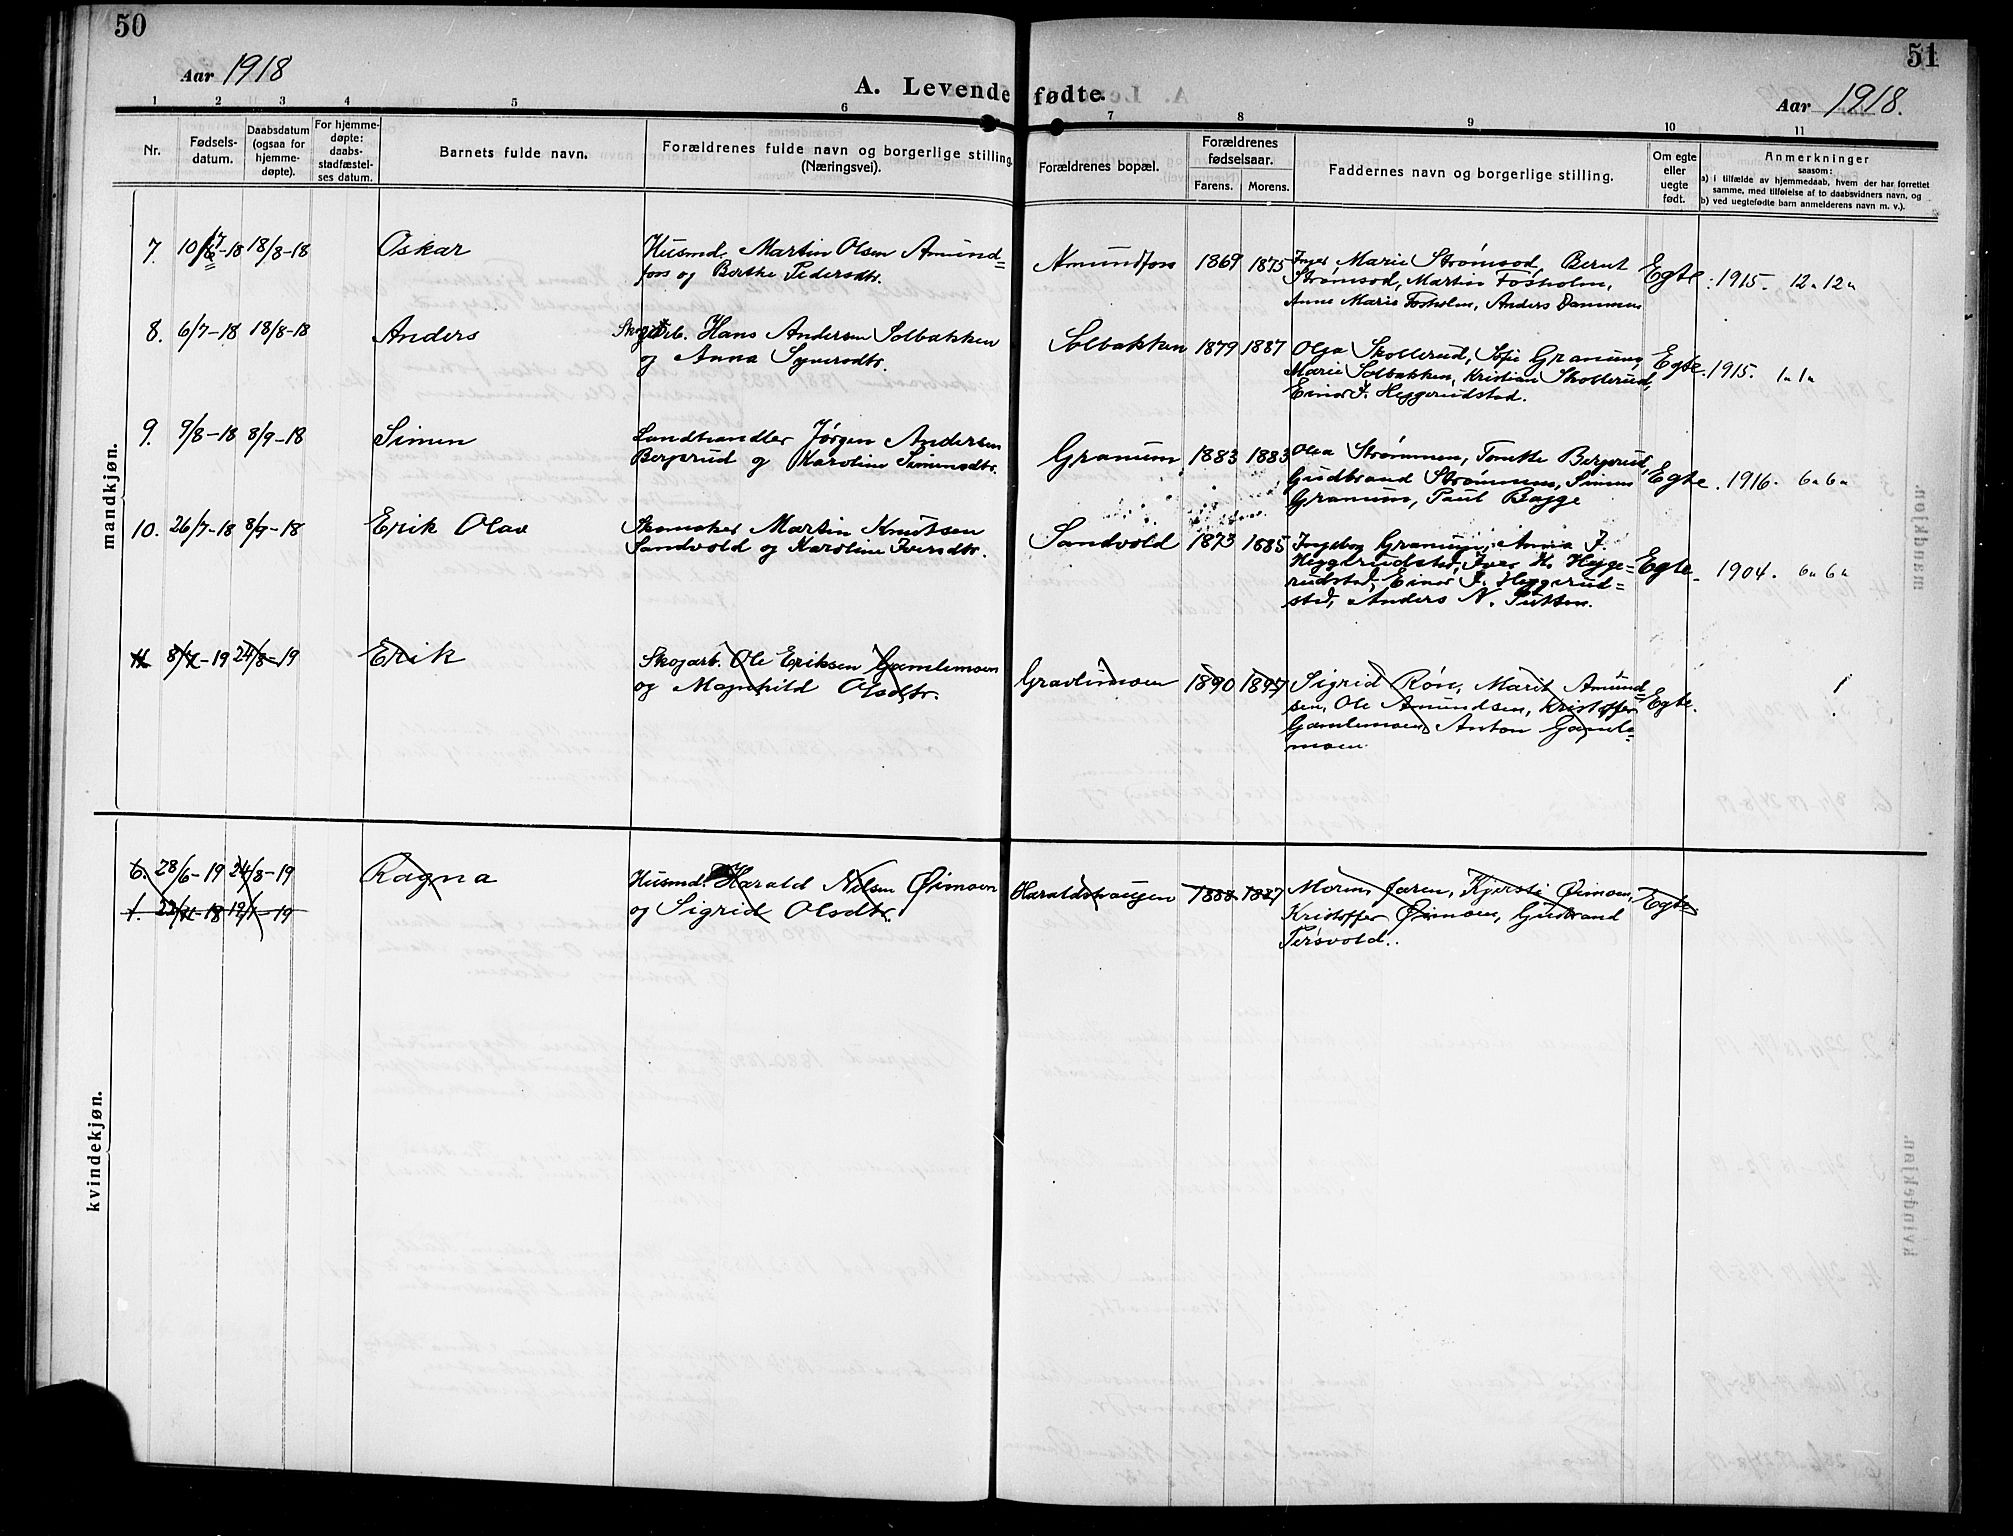 50
51
Aar 1918
A. Levende fødte.
Aar 1918.
1 2 3 4 5 6 7 8 9 10 11
Nr.
Fødsels-
datum.
Daabsdatum
(ogsaa for
hjemme-
døpte).
For hjemme-
døpte:
daabs-
stadfæstel-
ses datum.
Barnets fulde navn.
Forældrenes fulde navn og borgerlige stilling
(Næringsvei).
Forældrenes bopæl.
Forældrenes
fødselsaar.
Farens. Morens.
Faddernes navn og borgerlige stilling.
Om egte
eller
uegte
født.
Anmerkninger
saasom:
a) i tilfælde av hjemmedaab, hvem der har forrettet
samme, med tilføielse af to daabsvidners navn, og
b) ved uegtefødte barn anmelderens navn m. v.).
mandkjøn.
7. 10/7-18 18/8-18 Oskar
Husmd. Martin Olsen Amund=
fors og Berthe Pedersdtr.
Amundfors 1869 1875
Inger Marie Strømsod, Bernt
Strømsod, Martin Fosholm,
Anne Marie Fosholm, Anders Dammen
Egte. 1915. 12 a 12 a
8. 6/7-18 18/8-18 Anders
Skogarb. Hans Andersen Solbakken
og Anna Syversdtr.
Solbakken 1879 1887
Olga Skollerud, Sofie Granum,
Marie Solbakken, Kristian Skollerud,
Einar I. Heggerudstad.
Egte. 1915. 1 a 1 a
9. 9/8-18 8/9-18 Simen
Landhandler Jørgen Andersen
Bergerud og Karoline Simensdtr.
Granum 1883 1883
Olga Strømmen, Tonette Bergerud,
Gudbrand Strømmen, Simen
Granum, Paul Bagge
Egte. 1916. 6 a 6 a
10. 26/7-18 8/9-18 Erik Olav
Skomaker Martin Knutsen
Sandvold og Karoline Iversdtr.
Sandvold 1873 1885
Ingebog Granum, Anna I.
Heggerudstad, Iver K. Hegge=
rudstad, Einar I. Heggerud=
stad, Anders N. Putten.
Egte. 1904. 6 a 6 a
11. 8/7-19 24/8-19 Erik
Skogarb. Ole Eriksen Gamlemoen
og Magnhild Olsdtr.
Gravlimoen 1890 1897
Sigrid Røn, Marit Amund=
sen, Ole Amundsen, Kristoffer
Gamlemoen, Anton Gamle=
moen
Egte.
kvindekjøn.
6. 28/6-19 24/8-19 Ragna
1. 22/11-18 12/1-19
Husmd. Harald Nilsen Øimoen
og Sigrid Olsdtr.
Haraldshaugen 1888 1887
Maren Jaren, Kjersti Øimoen,
Kristoffer Øimoen, Gudbrand
Persvold.
Egte